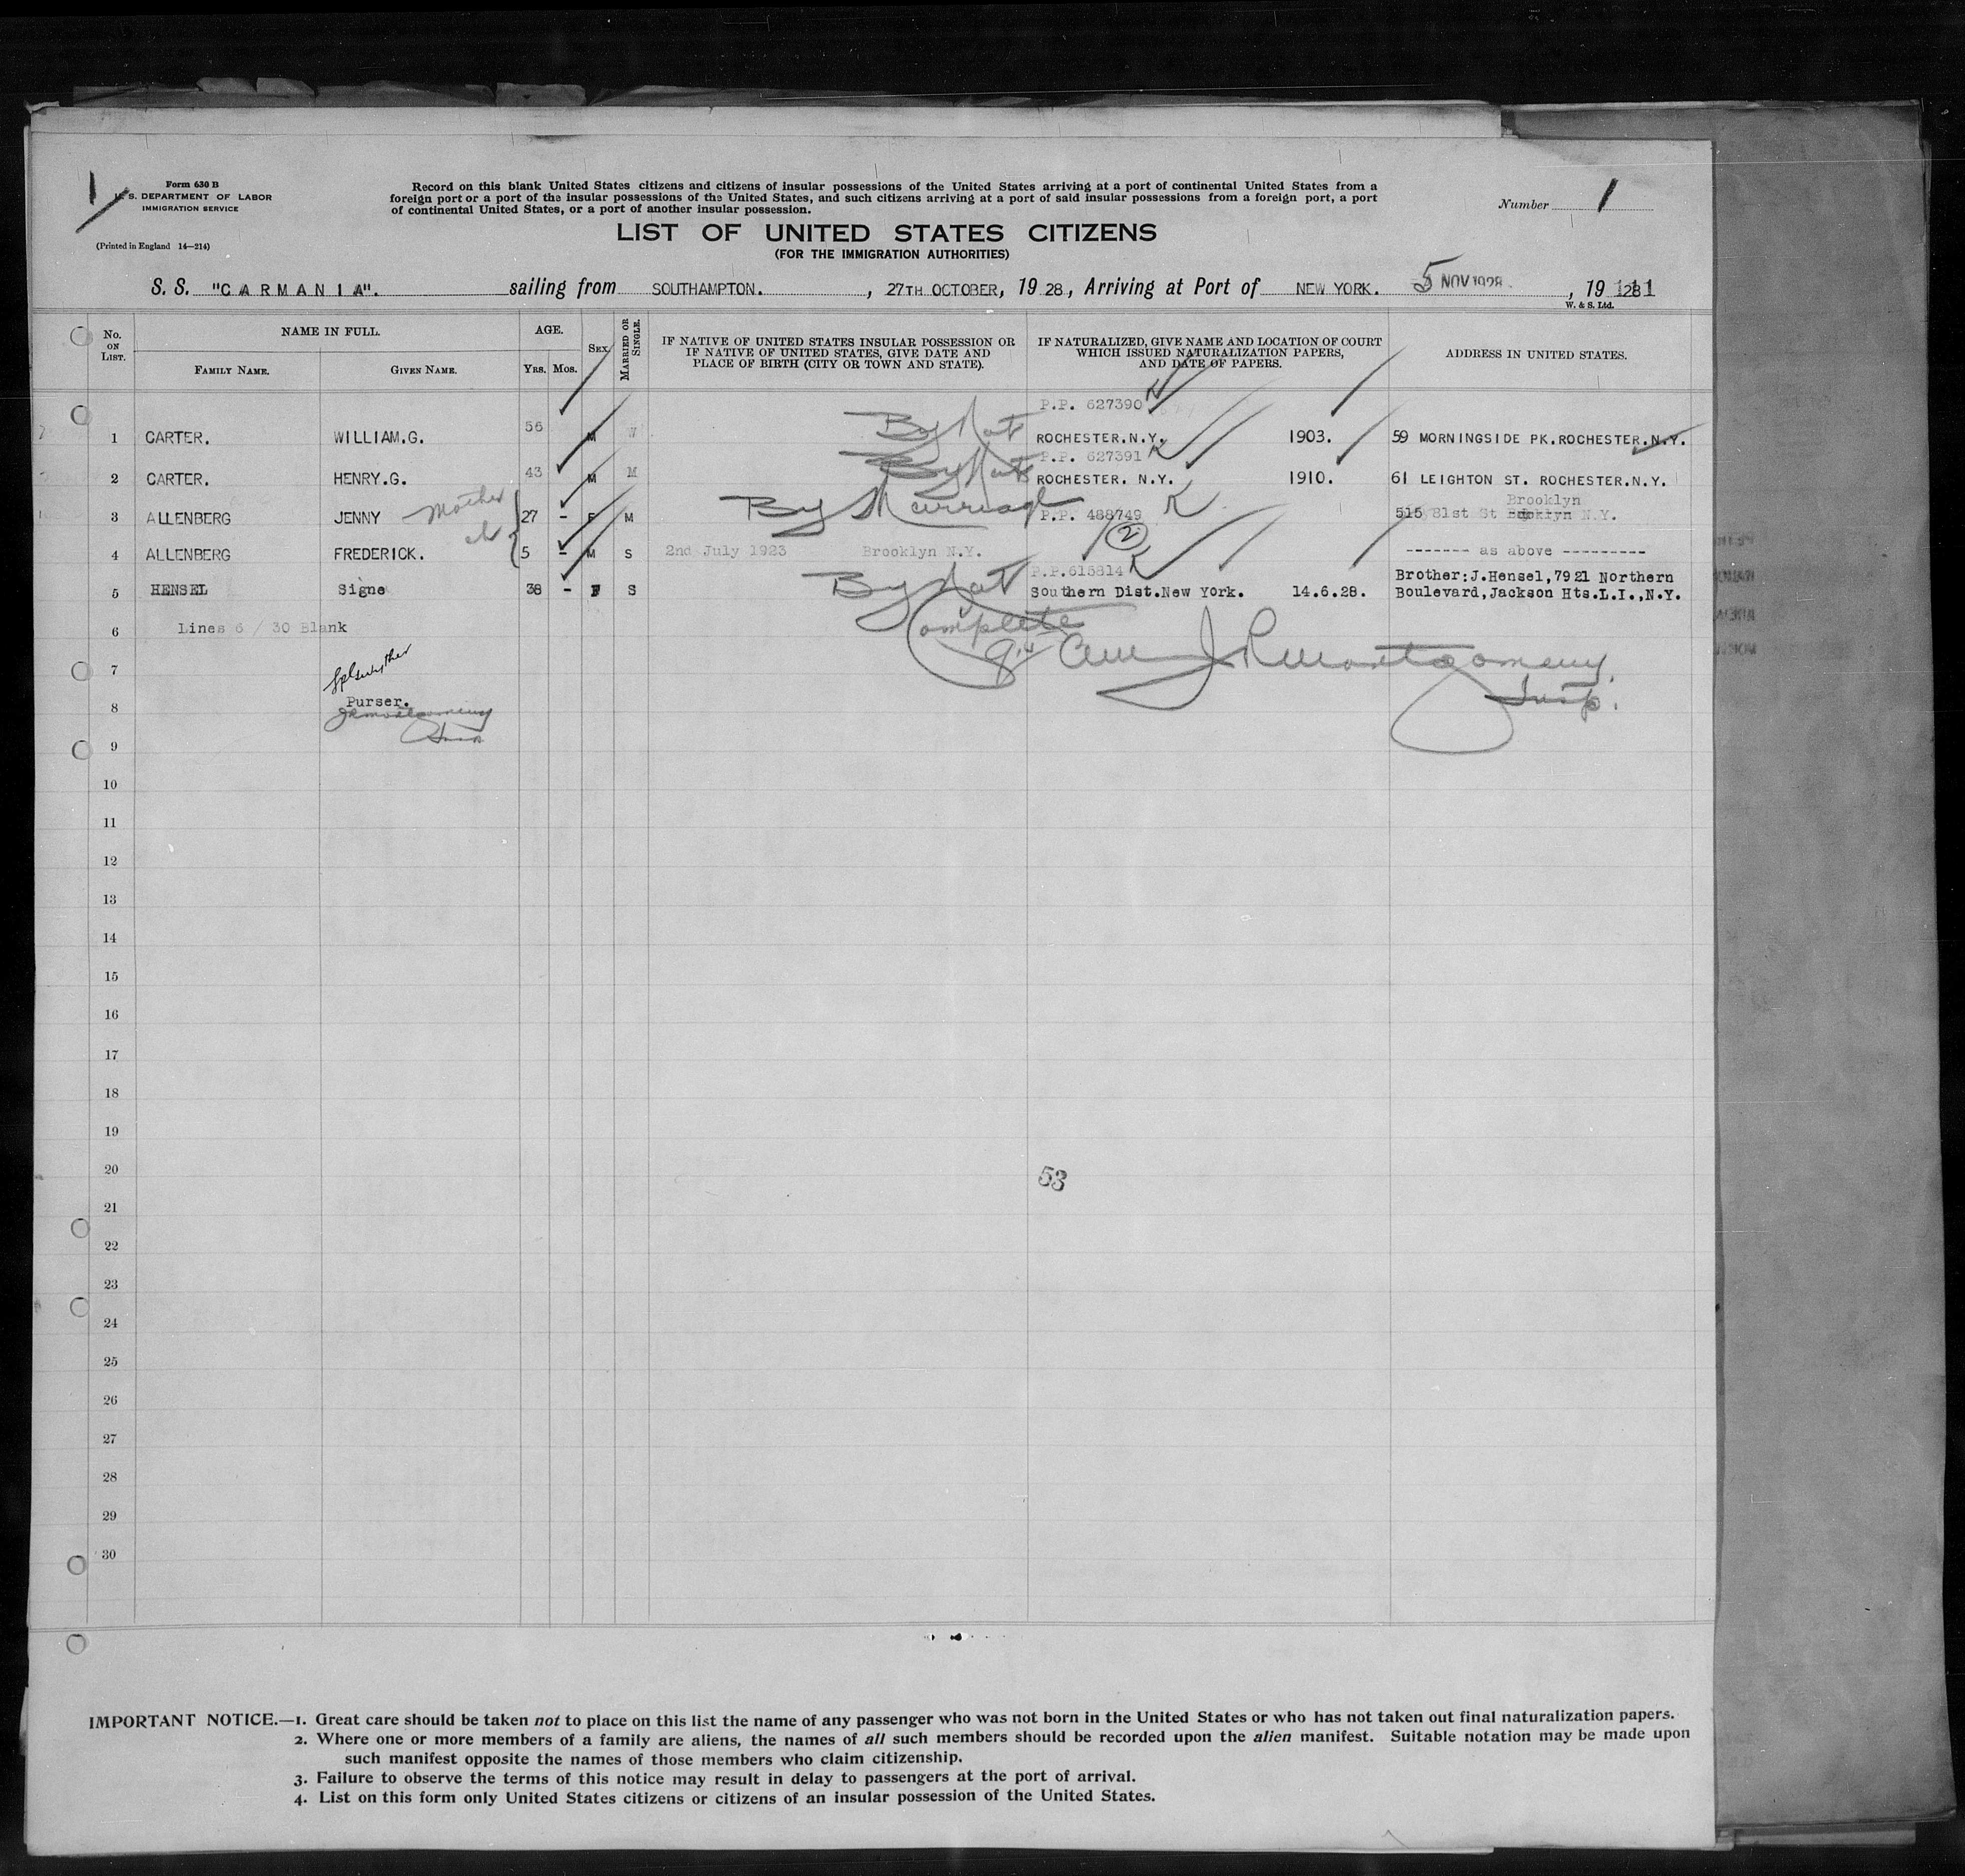 1
Form 630 B
U. S. DEPARTMENT OF LABOR
IMMIGRATION SERVICE
(Printed in England 14—214)
Record on this blank United States citizens and citizens of insular possessions of the United States arriving at a port of continental United States from a
foreign port or a port of the insular possessions of the United States, and such citizens arriving at a port of said insular possessions from a foreign port, a port
of continental United States, or a port of another insular possession.
Number 1
LIST OF UNITED STATES CITIZENS
(FOR THE IMMIGRATION AUTHORITIES)
S. S. "CARMANIA". sailing from SOUTHAMPTON. , 27TH OCTOBER, 19 28, Arriving at Port of NEW YORK. 5 NOV 1928 , 19 28
W. & S. Ltd.
No. ON LIST.
NAME IN FULL.
FAMILY NAME. GIVEN NAME.
AGE.
YRS. MOS.
SEX
MARRIED OR SINGLE.
IF NATIVE OF UNITED STATES INSULAR POSSESSION OR
IF NATIVE OF UNITED STATES, GIVE DATE AND
PLACE OF BIRTH (CITY OR TOWN AND STATE).
IF NATURALIZED, GIVE NAME AND LOCATION OF COURT
WHICH ISSUED NATURALIZATION PAPERS,
AND DATE OF PAPERS.
ADDRESS IN UNITED STATES.
P.P. 627390
1 CARTER. WILLIAM.G. 56 M W By Nat ROCHESTER.N.Y. 1903. 59 MORNINGSIDE PK.ROCHESTER.N.Y.
P.P. 627391
2 CARTER. HENRY.G. 43 M M By Nat ROCHESTER. N.Y. 1910. 61 LEIGHTON ST. ROCHESTER.N.Y.
Brooklyn
3 ALLENBERG JENNY Mother 27 - F M By Marriage P.P. 488749 515 81st St N.Y.
2
4 ALLENBERG FREDERICK. ch 5 - M S 2nd July 1923 Brooklyn N.Y. ------- as above ---------
P.P.615814 Brother:J.Hensel,7921 Northern
5 HENSEL Signe 38 - F S By Nat Southern Dist.New York. 14.6.28. Boulevard,Jackson Hts.L.I.,N.Y.
6 Lines 6 / 30 Blank Complete
7 J R Montgomery
Insp.
8 Purser.
JRMontgomery
Insp
9
10
11
12
13
14
15
16
17
18
19
20 53
21
22
23
24
25
26
27
28
29
30
IMPORTANT NOTICE.—1. Great care should be taken not to place on this list the name of any passenger who was not born in the United States or who has not taken out final naturalization papers.
2. Where one or more members of a family are aliens, the names of all such members should be recorded upon the alien manifest. Suitable notation may be made upon
such manifest opposite the names of those members who claim citizenship.
3. Failure to observe the terms of this notice may result in delay to passengers at the port of arrival.
4. List on this form only United States citizens or citizens of an insular possession of the United States.